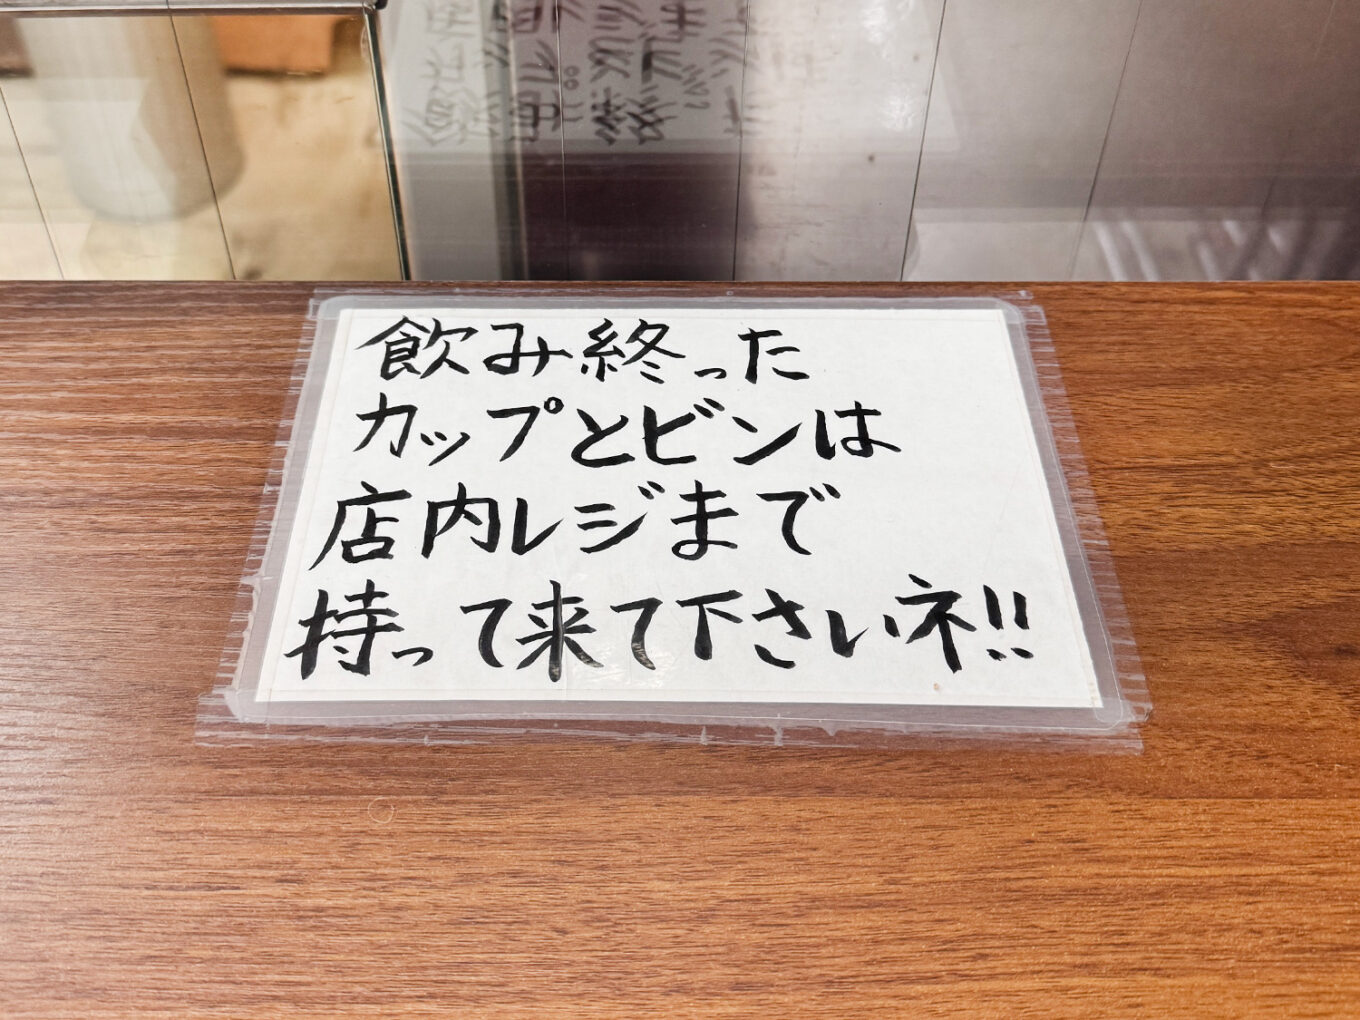 飲み終った
カップとビンは
店内レジまで
持って来て下さいネ!!